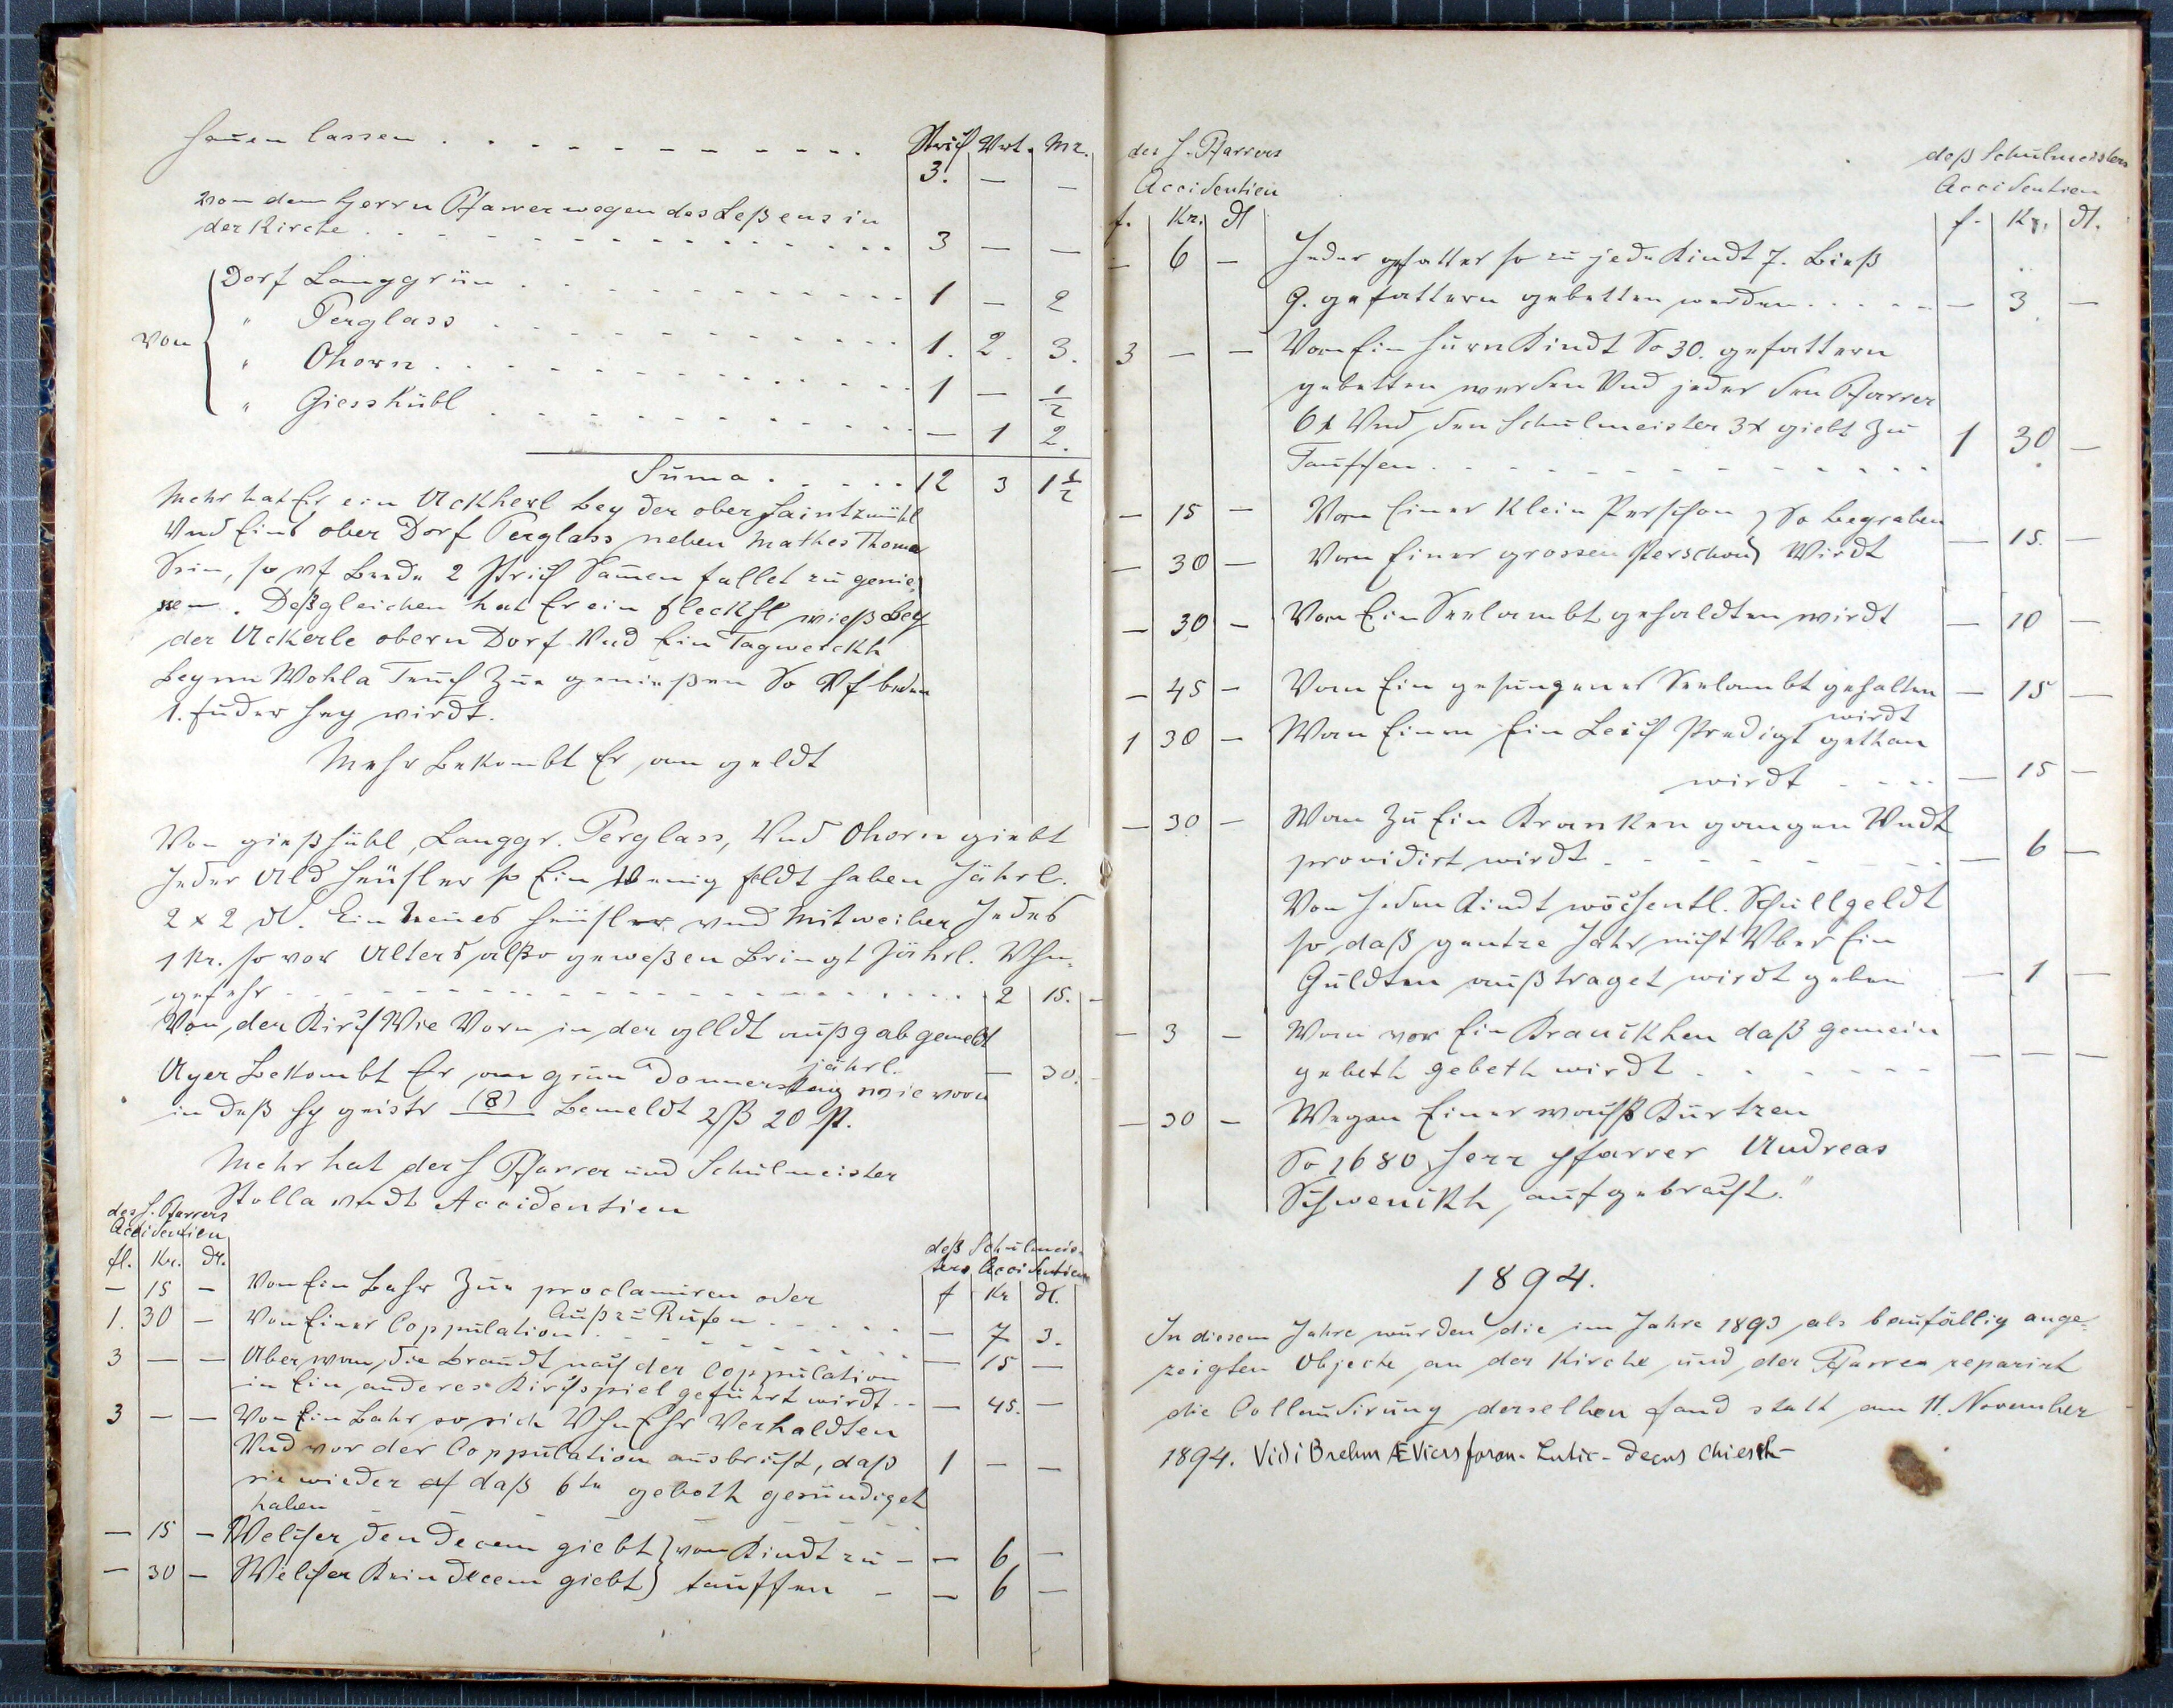 hauen lassen . . . . . . . . . . Strich Vrt. Mz.
3. — —
Von dem Herrn Pfarrer wegen des Leßens in
der Kirche . . . . . . . . . . 3 — —
Von
Dorf Langgrün . . . . . . . . . . 1 — 2
" Perglass . . . . . . . . . . 1. 2. 3.
" Ohorn . . . . . . . . . . 1 — 1/2
" Giesshübl . . . . . . . . . . — 1 2.
Suma . . . . . 12 3 1 1/2
Mehr hat Er ein Ackherl bey der ober Haintzmühl
Vnd Eins ober Dorf Perglass neben Mathes Thoma
Sein, so vf beede 2 Strich Samen fallet zu genie,
ssen. Deßgleichen hat Er ein fleckhl wieß bey
der Ackerle obern Dorf Vnd Ein Tagwerckh
beym Wohla Teuch Zue genießen So Vf beden
1. fuder hey wirdt.
Mehr bekombt Er an geldt
Von gießhübl, Langgr. Perglass, Vnd Ohorn giebt
Jeder Ald heüsler so Ein wenig feldt haben Jährl.
2 x 2 dl. Ein neues heüsler vnd Mitweiber Jedes
1 Kr. so vor Alters alßo geweßen bringt Jährl. Vhn-
gefehr . . . . . . . . . . 2 15. —
Von der Kirch Wie Vorn in der gelldt außgab gemelt
jährl. — 30. —
Ayer bekombt Er am grün Donnerstag wie vorn
in deß (8) bemeldt 2 ß 20 St.
Mehr hat der H Pfarrer und Schulmeister
Stolla vndt Accidentien
des H. Pfarrers
Accidentien
fl. Kr. dl.
deß Schulmeis-
ters Accidentien
f Kr dl.
— 15 — Von Ein Bahr Zue proclamiren oder
Auß zu Rufen . . . . . — 7 3.
1. 30 — Von Einer Coppulation . . . . . — 15 —
3 — — Aber wan die braudt nach der Coppulation
in Ein anderes Kirchspiel geführt wirdt . . — 45. —
3 — — Von Ein Bahr so sich VhnEhr Verhaldten
Vnd vor der Coppulation ausbricht, daß 1 — —
sie wieder daß 6te geboth gesündiget
haben
— 15 — Welcher den Decem giebt } von Kindt zu — — 6 —
— 30 — Welcher Kein decem giebt } tauffen — — 6 —
des H. Pfarrers
Accidentien
f. Kr. dl
deß Schulmeisters
Accidentien
f. Kr. dl.
— 6 — Jeder gefatter so zu jede Kindt 7. bieß
9. gefattern gebetten werden . . . . . — 3 —
3 — — Von Ein hurn Kindt So 30. gefattern
gebetten werden Vnd jeder den Pfarrer
6 x Vnd den Schulmeister 3 x giebt Zu
Tauffen . . . . . . . . . . 1 30 —
— 15 — Von Einer Klein Perschon } So begraben — 15. —
— 30 — Von Einer grossen Perschon } Wirdt
— 30 — Von Ein Seelambt gehaldten wirdt — 10 —
— 45 — Von Ein gesungenes Seelambt gehalten — 15 —
wirdt
1 30 — Wan Einem Ein Leich Predigt gethan
wirdt . . . . — 15 —
— 30 — Wan Zu Ein Kranken gangen Vndt
providirt wirdt . . . . . . . . — 6 —
Von Jeden Kindt wöchentl. Schullgeldt
so daß gantze Jahr nicht Vber Ein
Guldten außtraget wirdt geben — 1 —
— 3 — Wan vor Ein Kranckhen daß gemein
gebeth gebeth wirdt . . . . . . — — —
— 30 — Wegen Einer Kurtzen
So 1680 Herr Pfarrer Andreas
Schwenckh, aufgebracht."
1894.
In diesem Jahre wurden die im Jahre 1893 als baufällig ange-
zeigten Objecte an der Kirche und der Pfarrei reparirt
die Collaudirung derselben fand statt am 11. November
1894. Vidi Brehm